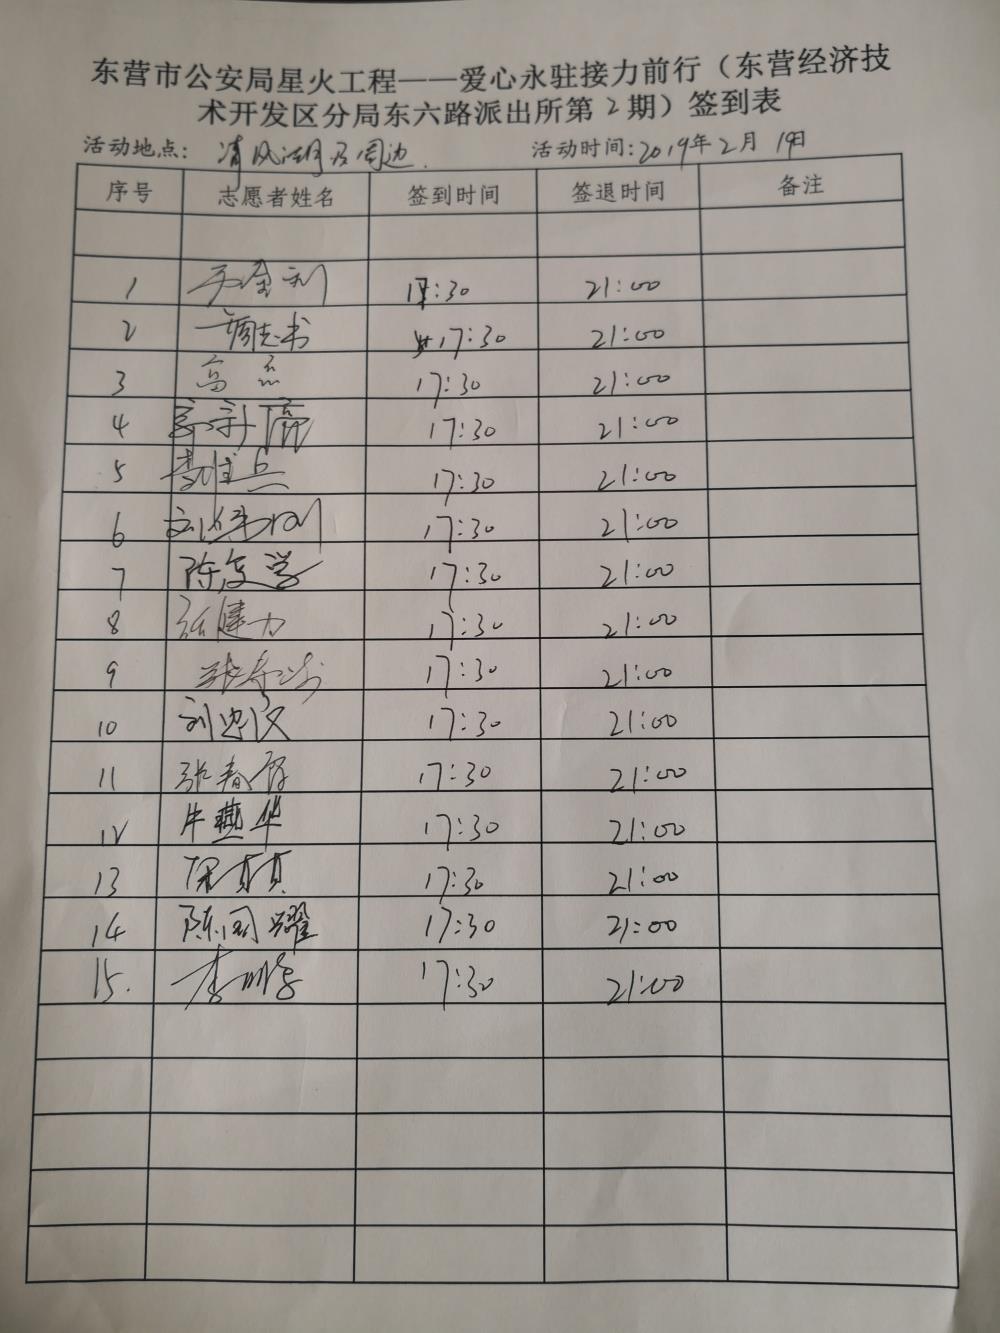 东营市公安局星火工程——爱心永驻接力前行（东营经济技
术开发区分局东六路派出所第2期）签到表
活动地点：清风湖及周边. 活动时间:2019年2月19日
序号 志愿者姓名 签到时间 签退时间 备注
1 17:30 21:00
2 周志书 17:30 21:00
3 高磊 17:30 21:00
4 17:30 21:00
5 17:30 21:00
6 17:30 21:00
7 陈复学 17:30 21:00
8 张建力 17:30 21:00
9 17:30 21:00
10 刘忠汉 17:30 21:00
11 张春 17:30 21:00
12 牛燕华 17:30 21:00
13 真真 17:30 21:00
14 陈国耀 17:30 21:00
15. 李明 17:30 21:00